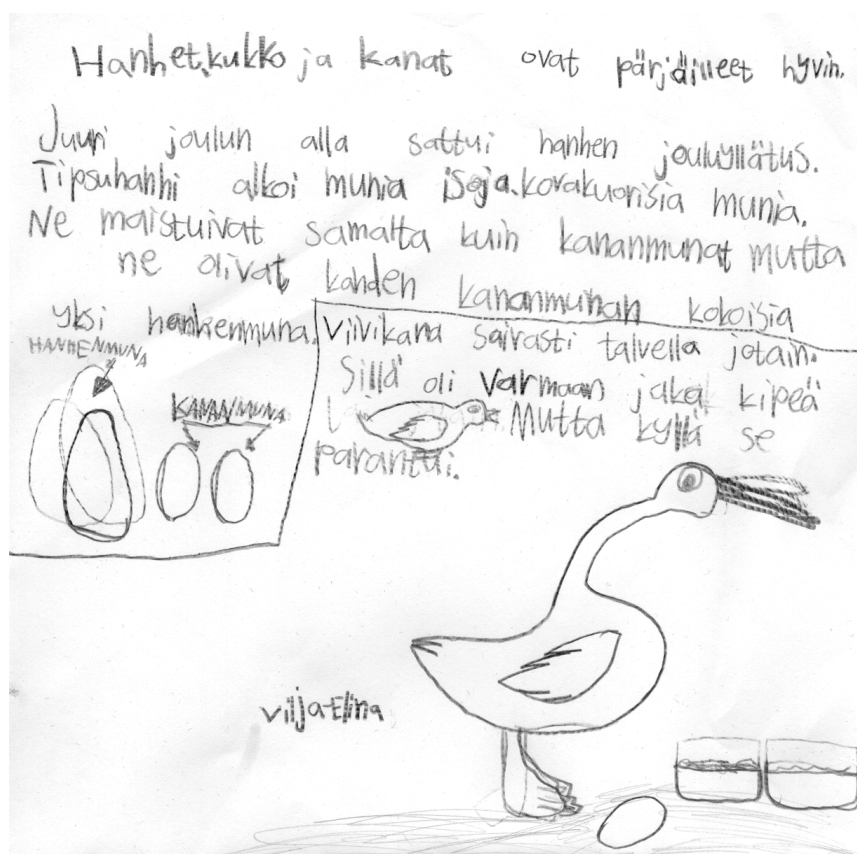 Hanhet, kukko ja kanat ovat pärjäilleet hyvin.
Juuri joulun alla sattui hanhen jouluyllätus.
Tipsuhanhi alkoi munia isoja. kovakuorisia munia.
Ne maistuivat samalta kuin kananmunat mutta
ne olivat kahden kananmunan kokoisia
yksi hanhenmuna.
HANHENMUNA
KANANMUNA
Viivikana sairasti talvella jotain.
Sillä oli varmaan jaka kipeä
Mutta kyllä se
parantui.
Vilja-Elina